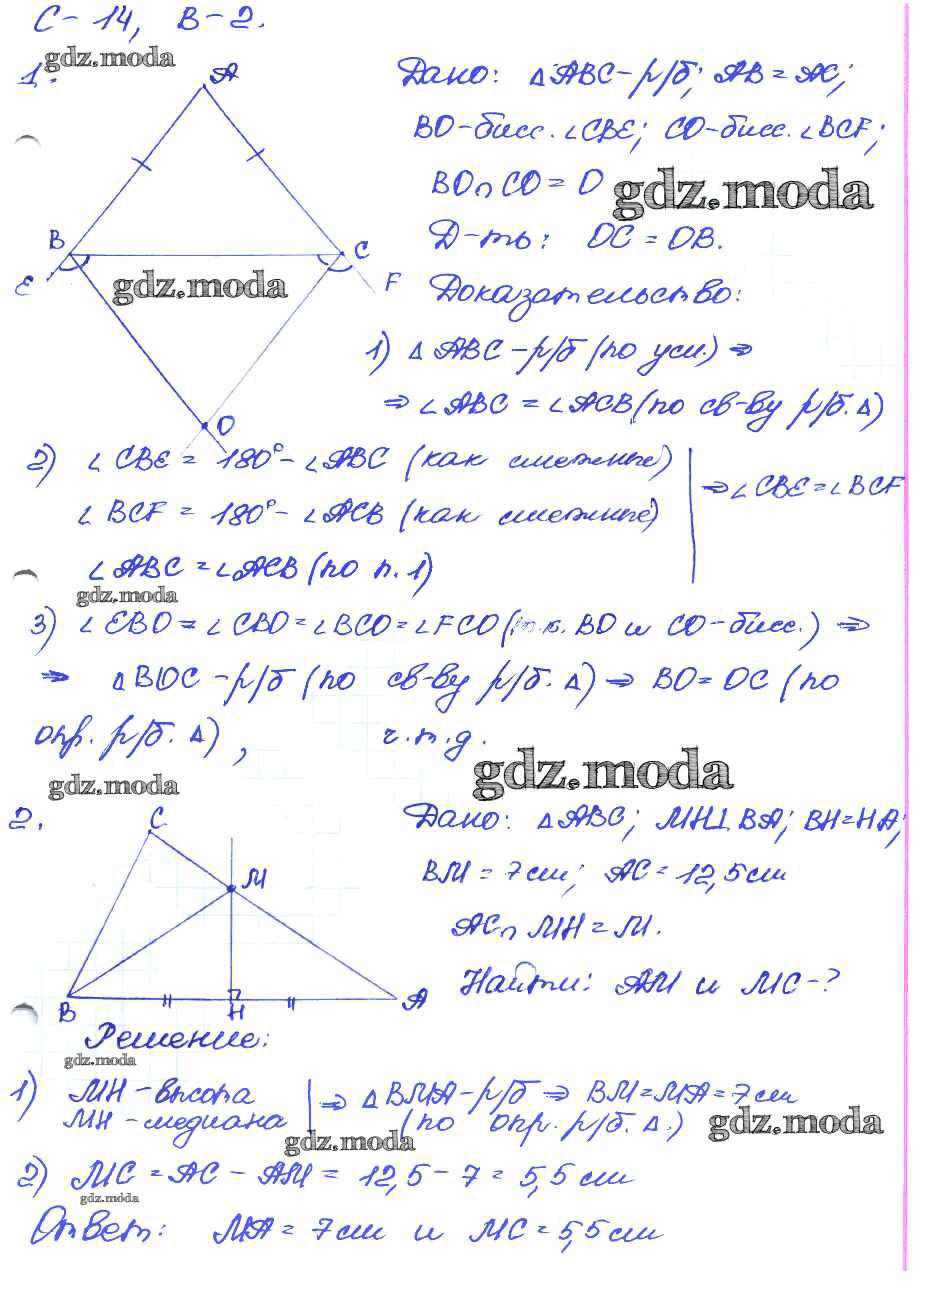 С-14, В-2.
gdz.moda
1.
A
Дано: △ABC-р/б; AB=AC;
BO-бисс.∠CBE; CO-бисс.∠BCF;
BO∩CO=O
gdz.moda
B
C
E
F
gdz.moda
Д-ть: OC=OB.
Доказательство:
1) △ABC-р/б (по усл.) ⇒
⇒ ∠ABC = ∠ACB (по св-ву р/б. △)
O
2) ∠CBE = 180°-∠ABC (как смежные)
⇒∠CBE=∠BCF
∠BCF = 180°-∠ACB (как смежные)
∠ABC=∠ACB (по п.1)
gdz.moda
3) ∠EBO=∠CBO=∠BCO=∠FCO (т.к. BO и CO-бисс.) ⇒
⇒ △BOC-р/б (по св-ву р/б. △) ⇒ BO=OC (по
опр. р/б. △), ч.т.д.
gdz.moda
gdz.moda
2.
C
M
B
H
A
Дано: △ABC; MH⊥BA; BH=HA;
BM=7см; AC=12,5см
AC∩MH=M.
Найти: AM и MC-?
Решение:
gdz.moda
1) MH-высота
MH-медиана
⇒ △BMA-р/б ⇒ BM=MA=7см
(по опр. р/б. △.)
gdz.moda
gdz.moda
2) MC=AC-AM=12,5-7=5,5см
gdz.moda
Ответ: MA=7см и MC=5,5см